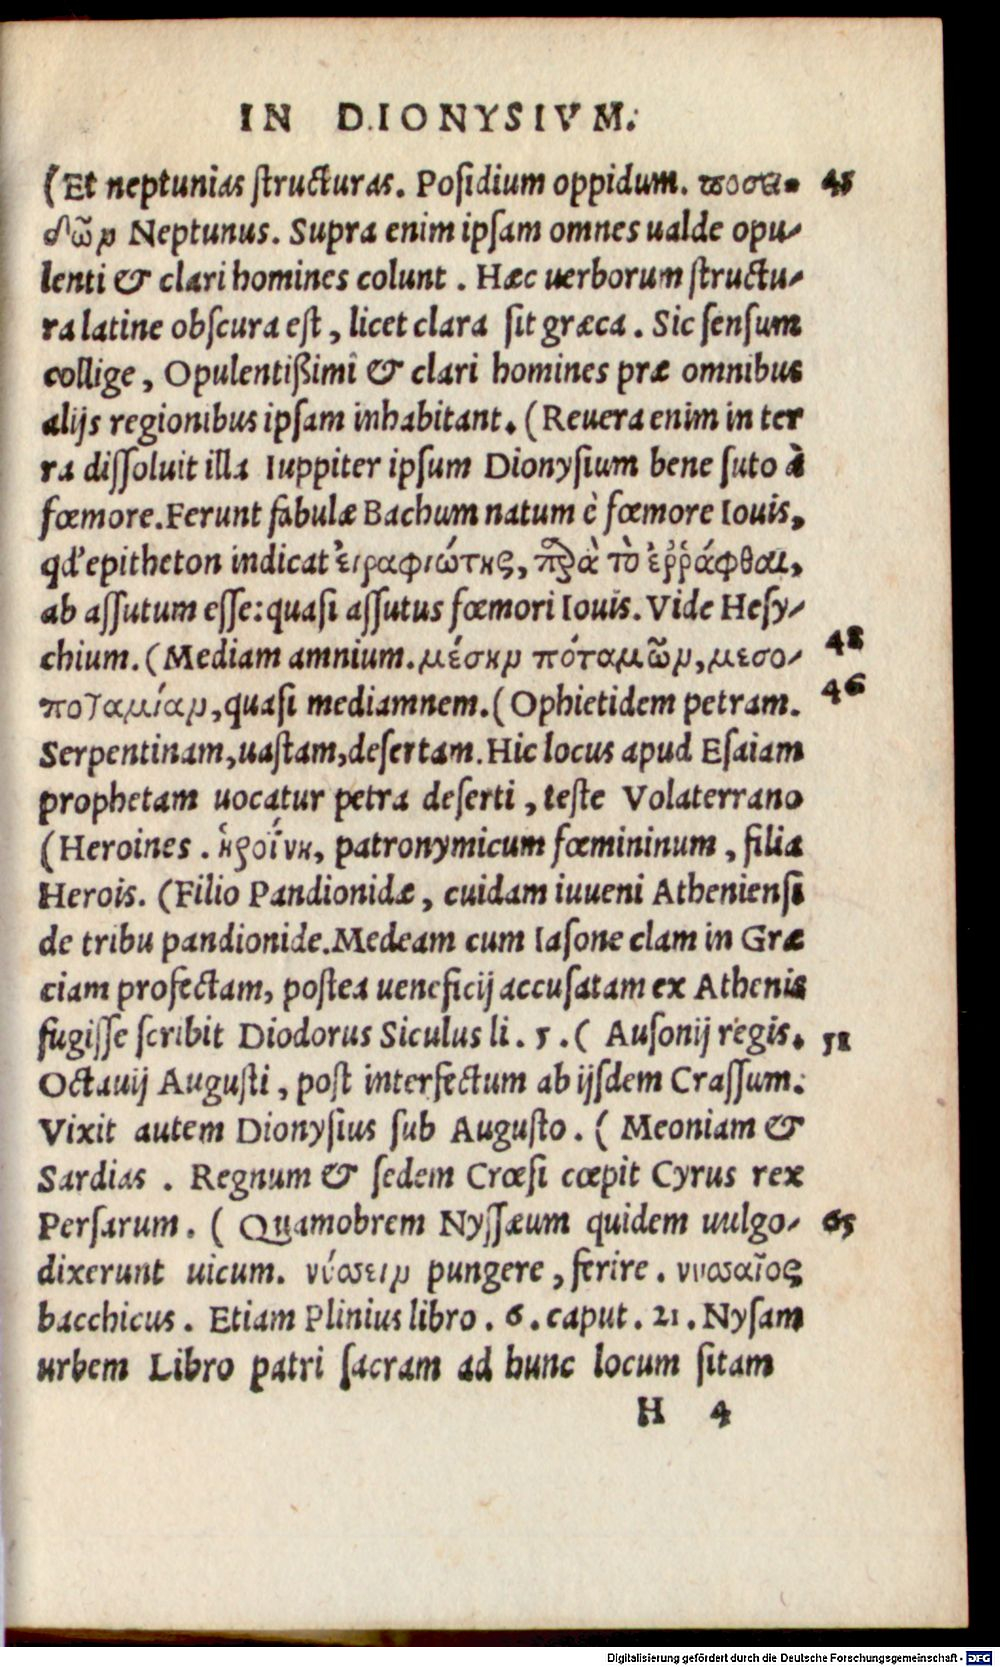 IN DIONYSIVM.
(Et neptunias structuras. Posidium oppidum. ποσει- 45
δῶν Neptunus. Supra enim ipsam omnes ualde opu-
lenti & clari homines colunt. Hæc uerborum structu-
ra latine obscura est, licet clara sit græca. Sic sensum
collige, Opulentißimi & clari homines præ omnibus
alijs regionibus ipsam inhabitant. (Reuera enim in ter
ra dissoluit illa Iuppiter ipsum Dionysium bene suto à
fœmore. Ferunt fabulæ Bachum natum è fœmore Iouis,
qd' epitheton indicat ἐιραφιώτης, παρὰ τὸ ἐῤῥάφθαι,
ab assutum esse: quasi assutus fœmori Iouis. Vide Hesy-
chium. (Mediam amnium. μέσην πόταμῶν, μεσο- 48
ποταμίαν, quasi mediamnem. (Ophietidem petram. 46
Serpentinam, uastam, desertam. Hic locus apud Esaiam
prophetam uocatur petra deserti, teste Volaterrano
(Heroines. ἡροΐνη, patronymicum fœmininum, filia
Herois. (Filio Pandionidæ, cuidam iuueni Atheniensi
de tribu pandionide. Medeam cum Iasone clam in Græ
ciam profectam, postea ueneficij accusatam ex Athenis
fugisse scribit Diodorus Siculus li. 5. ( Ausonij regis. 52
Octauij Augusti, post interfectum ab ijsdem Crassum.
Vixit autem Dionysius sub Augusto. ( Meoniam &
Sardias. Regnum & sedem Crœsi cœpit Cyrus rex
Persarum. ( Quamobrem Nyssæum quidem uulgo- 65
dixerunt uicum. νύσειν pungere, ferire. νυσαῖος
bacchicus. Etiam Plinius libro. 6. caput. 21. Nysam
urbem Libro patri sacram ad hunc locum sitam
H 4
Digitalisierung gefördert durch die Deutsche Forschungsgemeinschaft - DFG